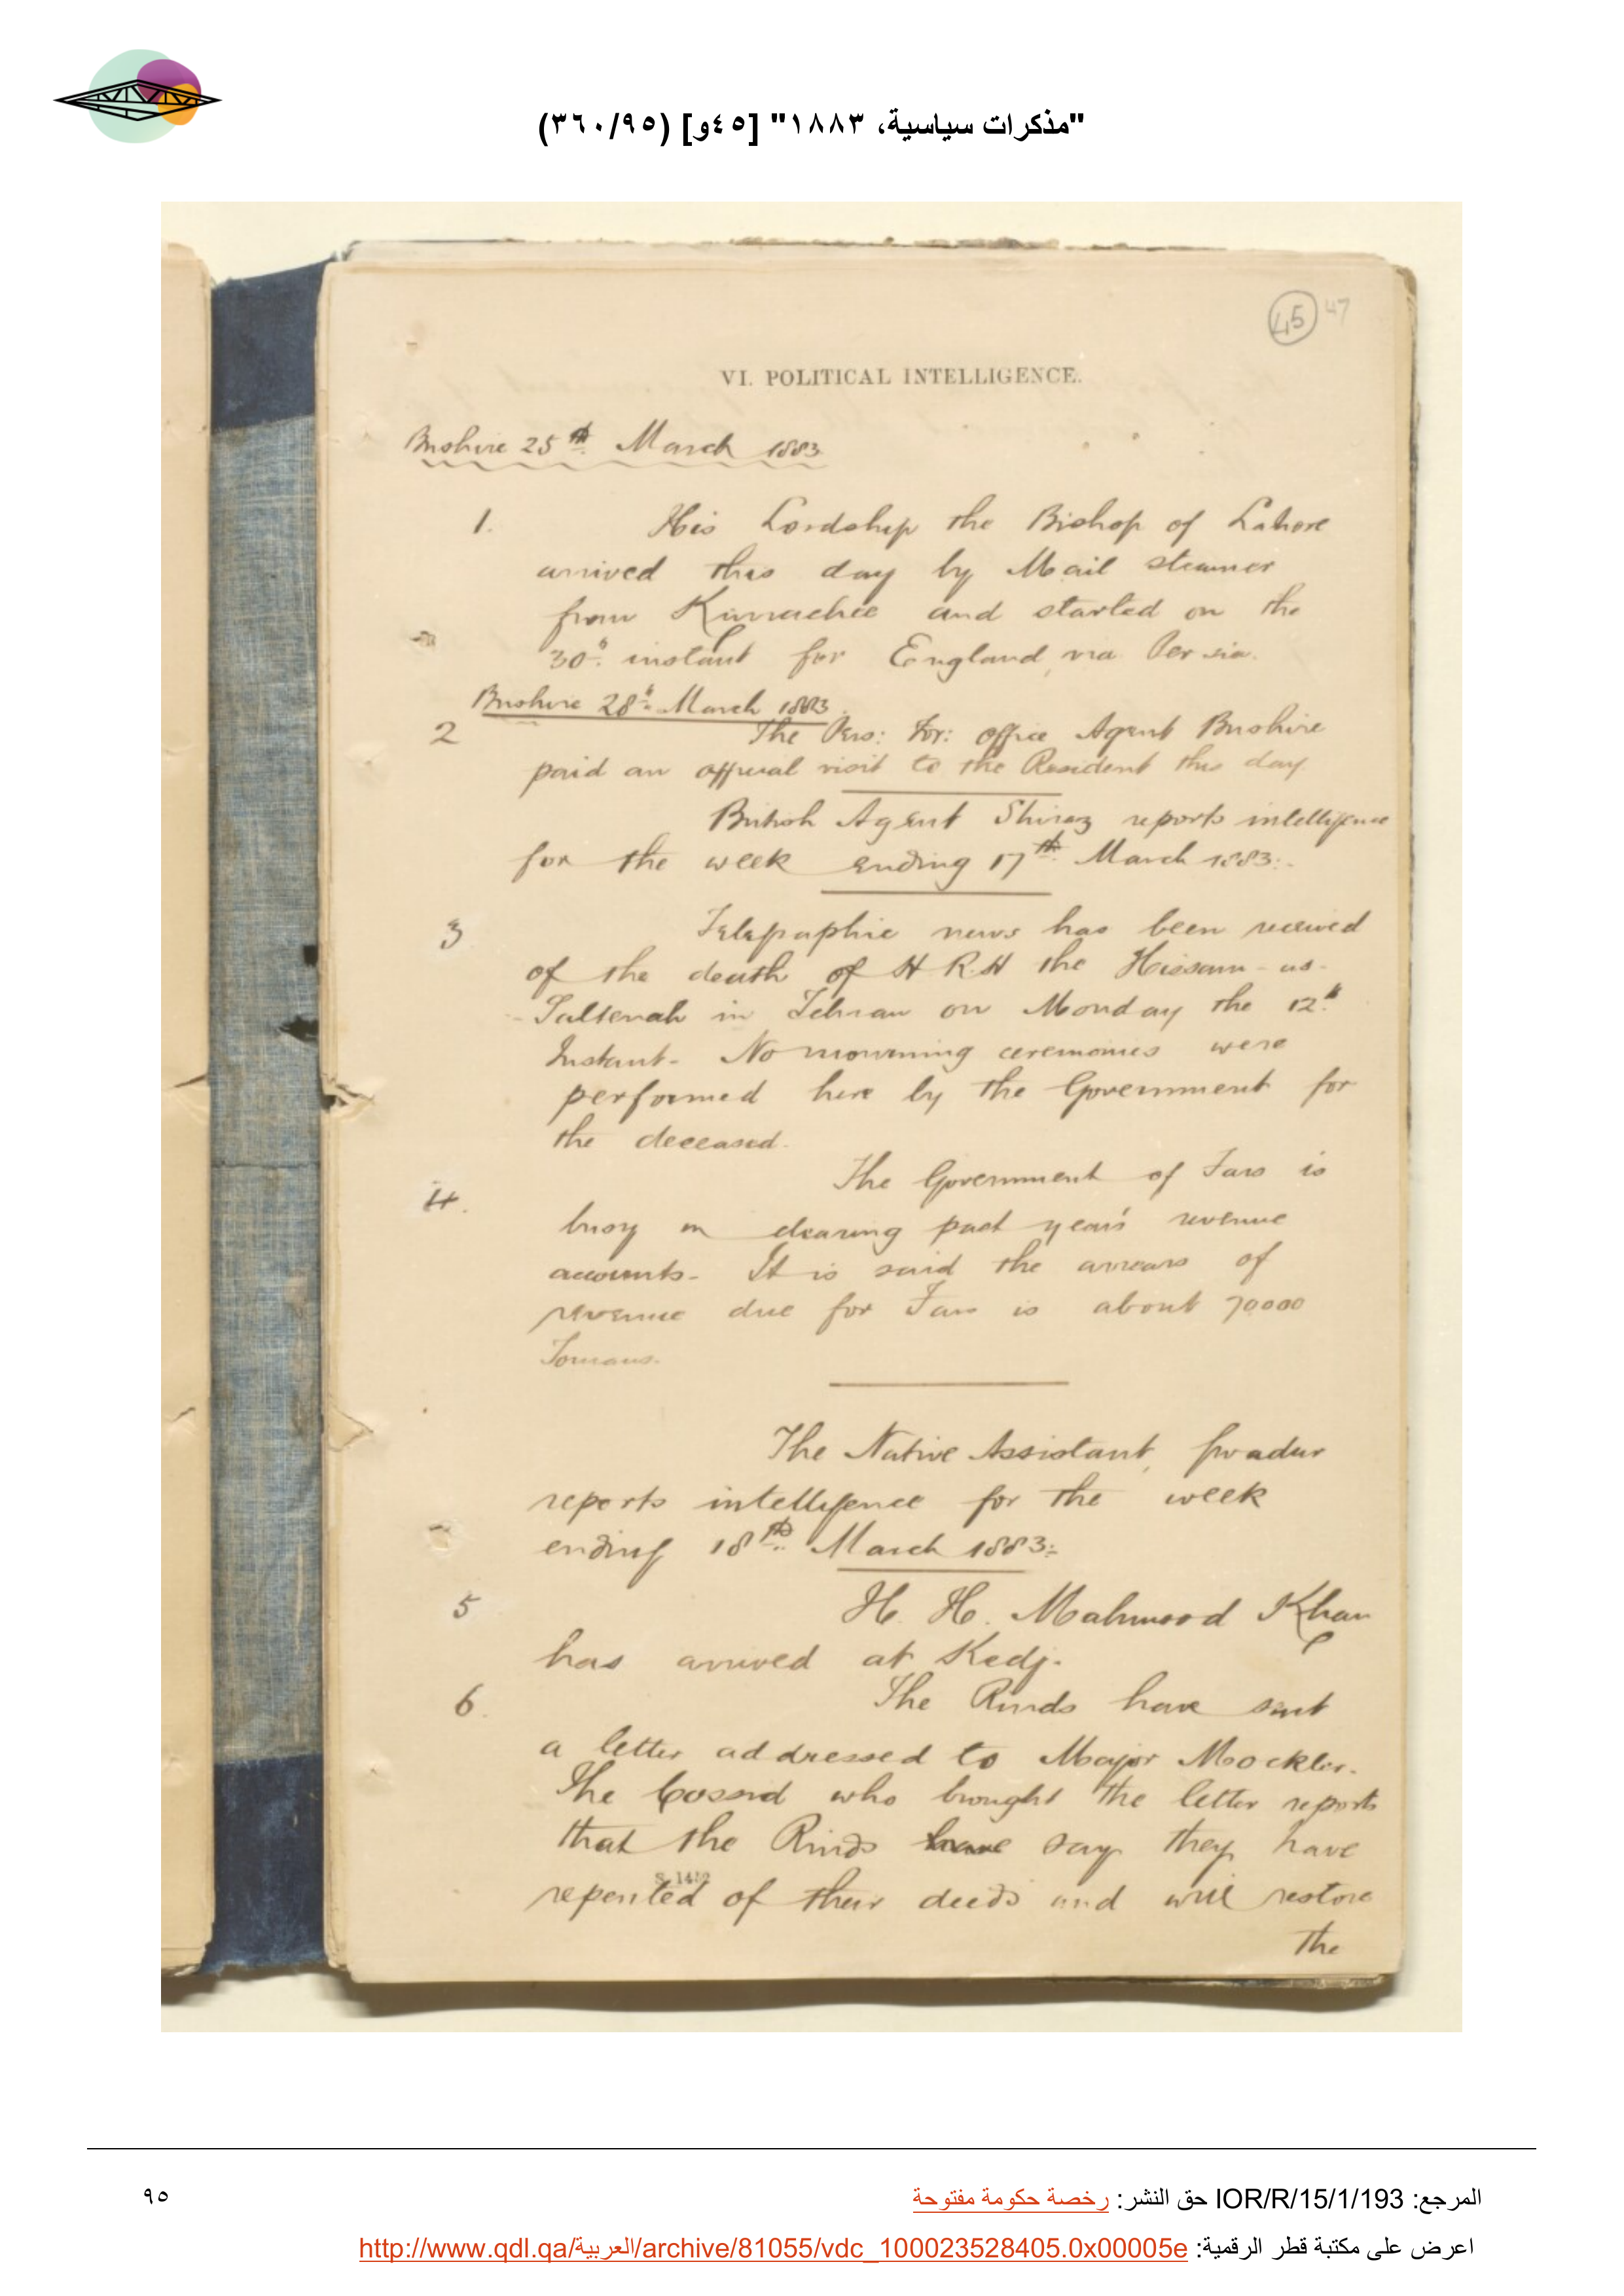 "مذكرات سياسية، ١٨٨٣" [٤٥و] (٣٦٠/٩٥)
45 47
VI. POLITICAL INTELLIGENCE.
Bushire 25th March 1883
1. His Lordship the Bishop of Lahore
arrived this day by Mail steamer
from Kurrachee and started on the
30th instant for England, via Persia.
Bushire 28th March 1883.
2 The Pers: For: office Agent Bushire
paid an official visit to the Resident this day.
British Agent Shiraz reports intelligence
for the week ending 17th March 1883:-
3 Telegraphic news has been received
of the death of H R.H the Hissam-us-
-Sultenah in Tehran on Monday the 12th
Instant- No mourning ceremonies were
performed here by the Government for
the deceased.
4. The Government of Fars is
busy in clearing past year's revenue
accounts- It is said the arrears of
revenue due for Fars is about 70000
Tomans.
The Native Assistant, Gwadur
reports intelligence for the week
ending 18th March 1883:-
5 H. H. Mahmood Khan
has arrived at Kedj.
6. The Rinds have sent
a letter addressed to Major Mockler.
The Cossid who brought the letter reports
that the Rinds have say they have
repented of their deeds and will restore
S. 1412
the
المرجع: IOR/R/15/1/193 حق النشر: رخصة حكومة مفتوحة
٩٥
اعرض على مكتبة قطر الرقمية: http://www.qdl.qa/العربية/archive/81055/vdc_100023528405.0x00005e